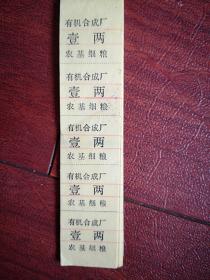 有机合成厂
壹 两
农基细粮
有机合成厂
壹 两
农基细粮
有机合成厂
壹 两
农基细粮
有机合成厂
壹 两
农基细粮
有机合成厂
壹 两
农基细粮